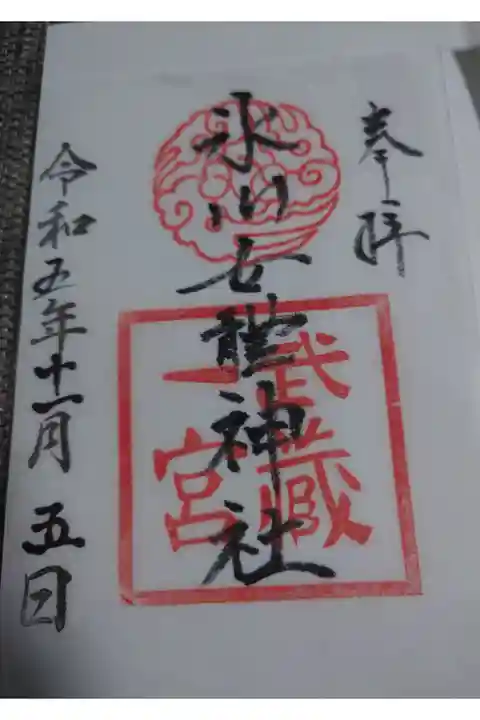 奉拝
氷川女體神社
武蔵
一宮
令和五年十一月五日